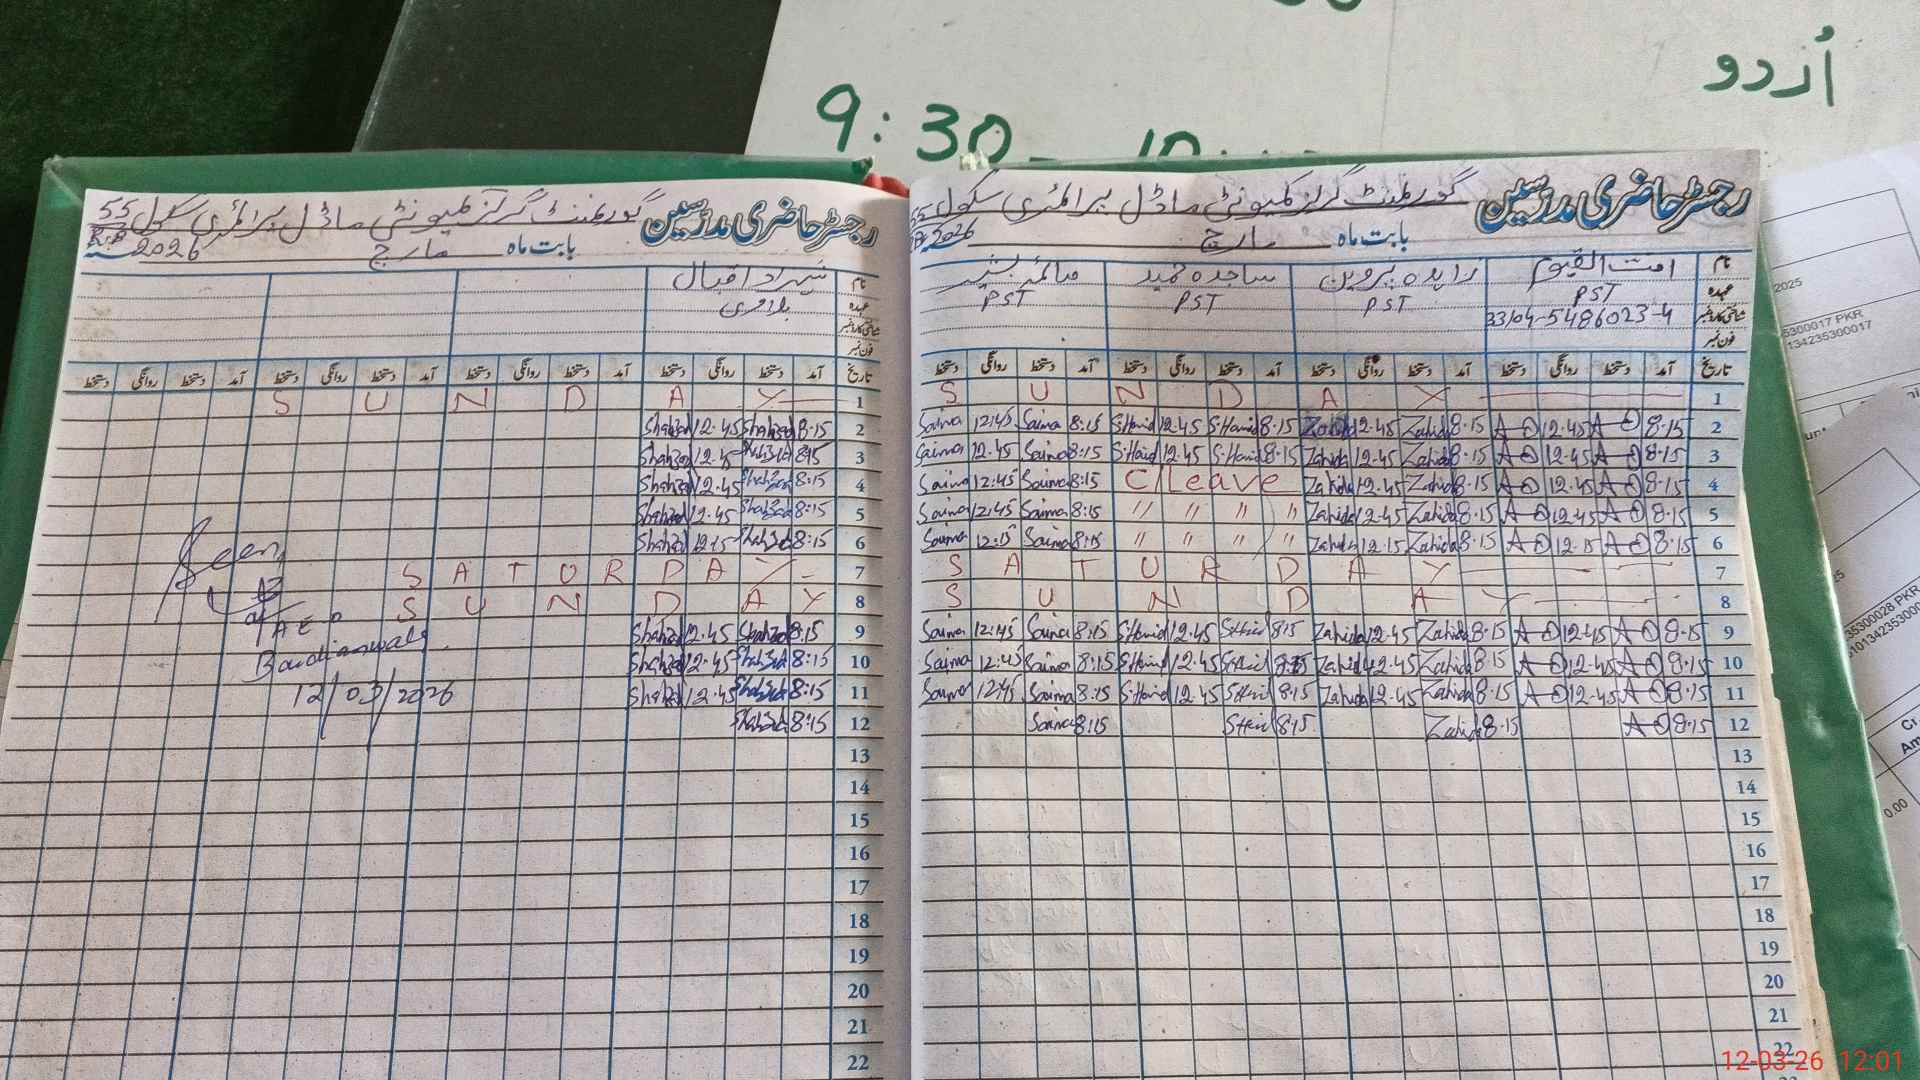 اُردو
9:30 - 10:
رجسٹر حاضری مدرسین گورنمنٹ گرلز کمیونٹی ماڈل پرائمری سکول 55
بابت ماہ مارچ 2026
نام شہزاد اقبال
عہدہ
شناختی کارڈ نمبر
فون نمبر
تاریخ آمد دستخط روانگی دستخط آمد دستخط روانگی دستخط آمد دستخط روانگی دستخط آمد دستخط روانگی دستخط
1 S U N D A Y
2 Shahzad 12.45 Shahzad 8.15
3 Shahzad 12.45 Shahzad 8:15
4 Shahzad 12.45 Shahzad 8:15
5 Shahzad 12.45 Shahzad 8:15
6 Shahzad 12:15 Shahzad 8:15
7 S A T U R D A Y
8 S U N D A Y
9 Shahzad 12.45 Shahzad 8:15
10 Shahzad 12.45 Shahzad 8:15
11 Shahzad 12.45 Shahzad 8:15
12 Shahzad 8:15
13
14
15
16
17
18
19
20
21
22
Seen
AEO
12/03/2026
رجسٹر حاضری مدرسین گورنمنٹ گرلز کمیونٹی ماڈل پرائمری سکول 55
بابت ماہ مارچ 2026
نام امت القیوم زاہدہ پروین ساجدہ حمید صائمہ بشیر
عہدہ PST PST PST PST
شناختی کارڈ نمبر 33104-5486023-4
فون نمبر
تاریخ آمد دستخط روانگی دستخط آمد دستخط روانگی دستخط آمد دستخط روانگی دستخط آمد دستخط روانگی دستخط
S U N D A Y 1
Saima 12:45 Saima 8:15 S.Hamid 12.45 S.Hamid 8.15 Zahida 12.45 Zahida 8.15 A 12.45 A 8.15 2
Saima 12.45 Saima 8:15 S.Hamid 12.45 S.Hamid 8.15 Zahida 12.45 Zahida 8.15 A 12.45 A 8.15 3
Saima 12:45 Saima 8:15 C/Leave Zahida 12.45 Zahida 8.15 A 12.45 A 8.15 4
Saima 12:45 Saima 8:15 " " " " Zahida 12.45 Zahida 8.15 A 12.45 A 8.15 5
Saima 12:15 Saima 8:15 " " " " Zahida 12.15 Zahida 8.15 A 12.15 A 8.15 6
S A T U R D A Y 7
S U N D A Y 8
Saima 12:45 Saima 8:15 S.Hamid 12.45 8:15 Zahida 12.45 Zahida 8.15 A 12.45 A 8.15 9
Saima 12:45 Saima 8:15 S.Hamid 12.45 8:15 Zahida 12.45 Zahida 8.15 A 12.45 A 8.15 10
Saima 12:45 Saima 8:15 S.Hamid 12.45 8.15 Zahida 12.45 Zahida 8.15 A 12.45 A 8.15 11
Saima 8:15 8:15 Zahida 8.15 A 8.15 12
13
14
15
16
17
18
19
20
21
22
2025
5300017 PKR
134235300017
35300028 PKR
0.00
12-03-26 12:01